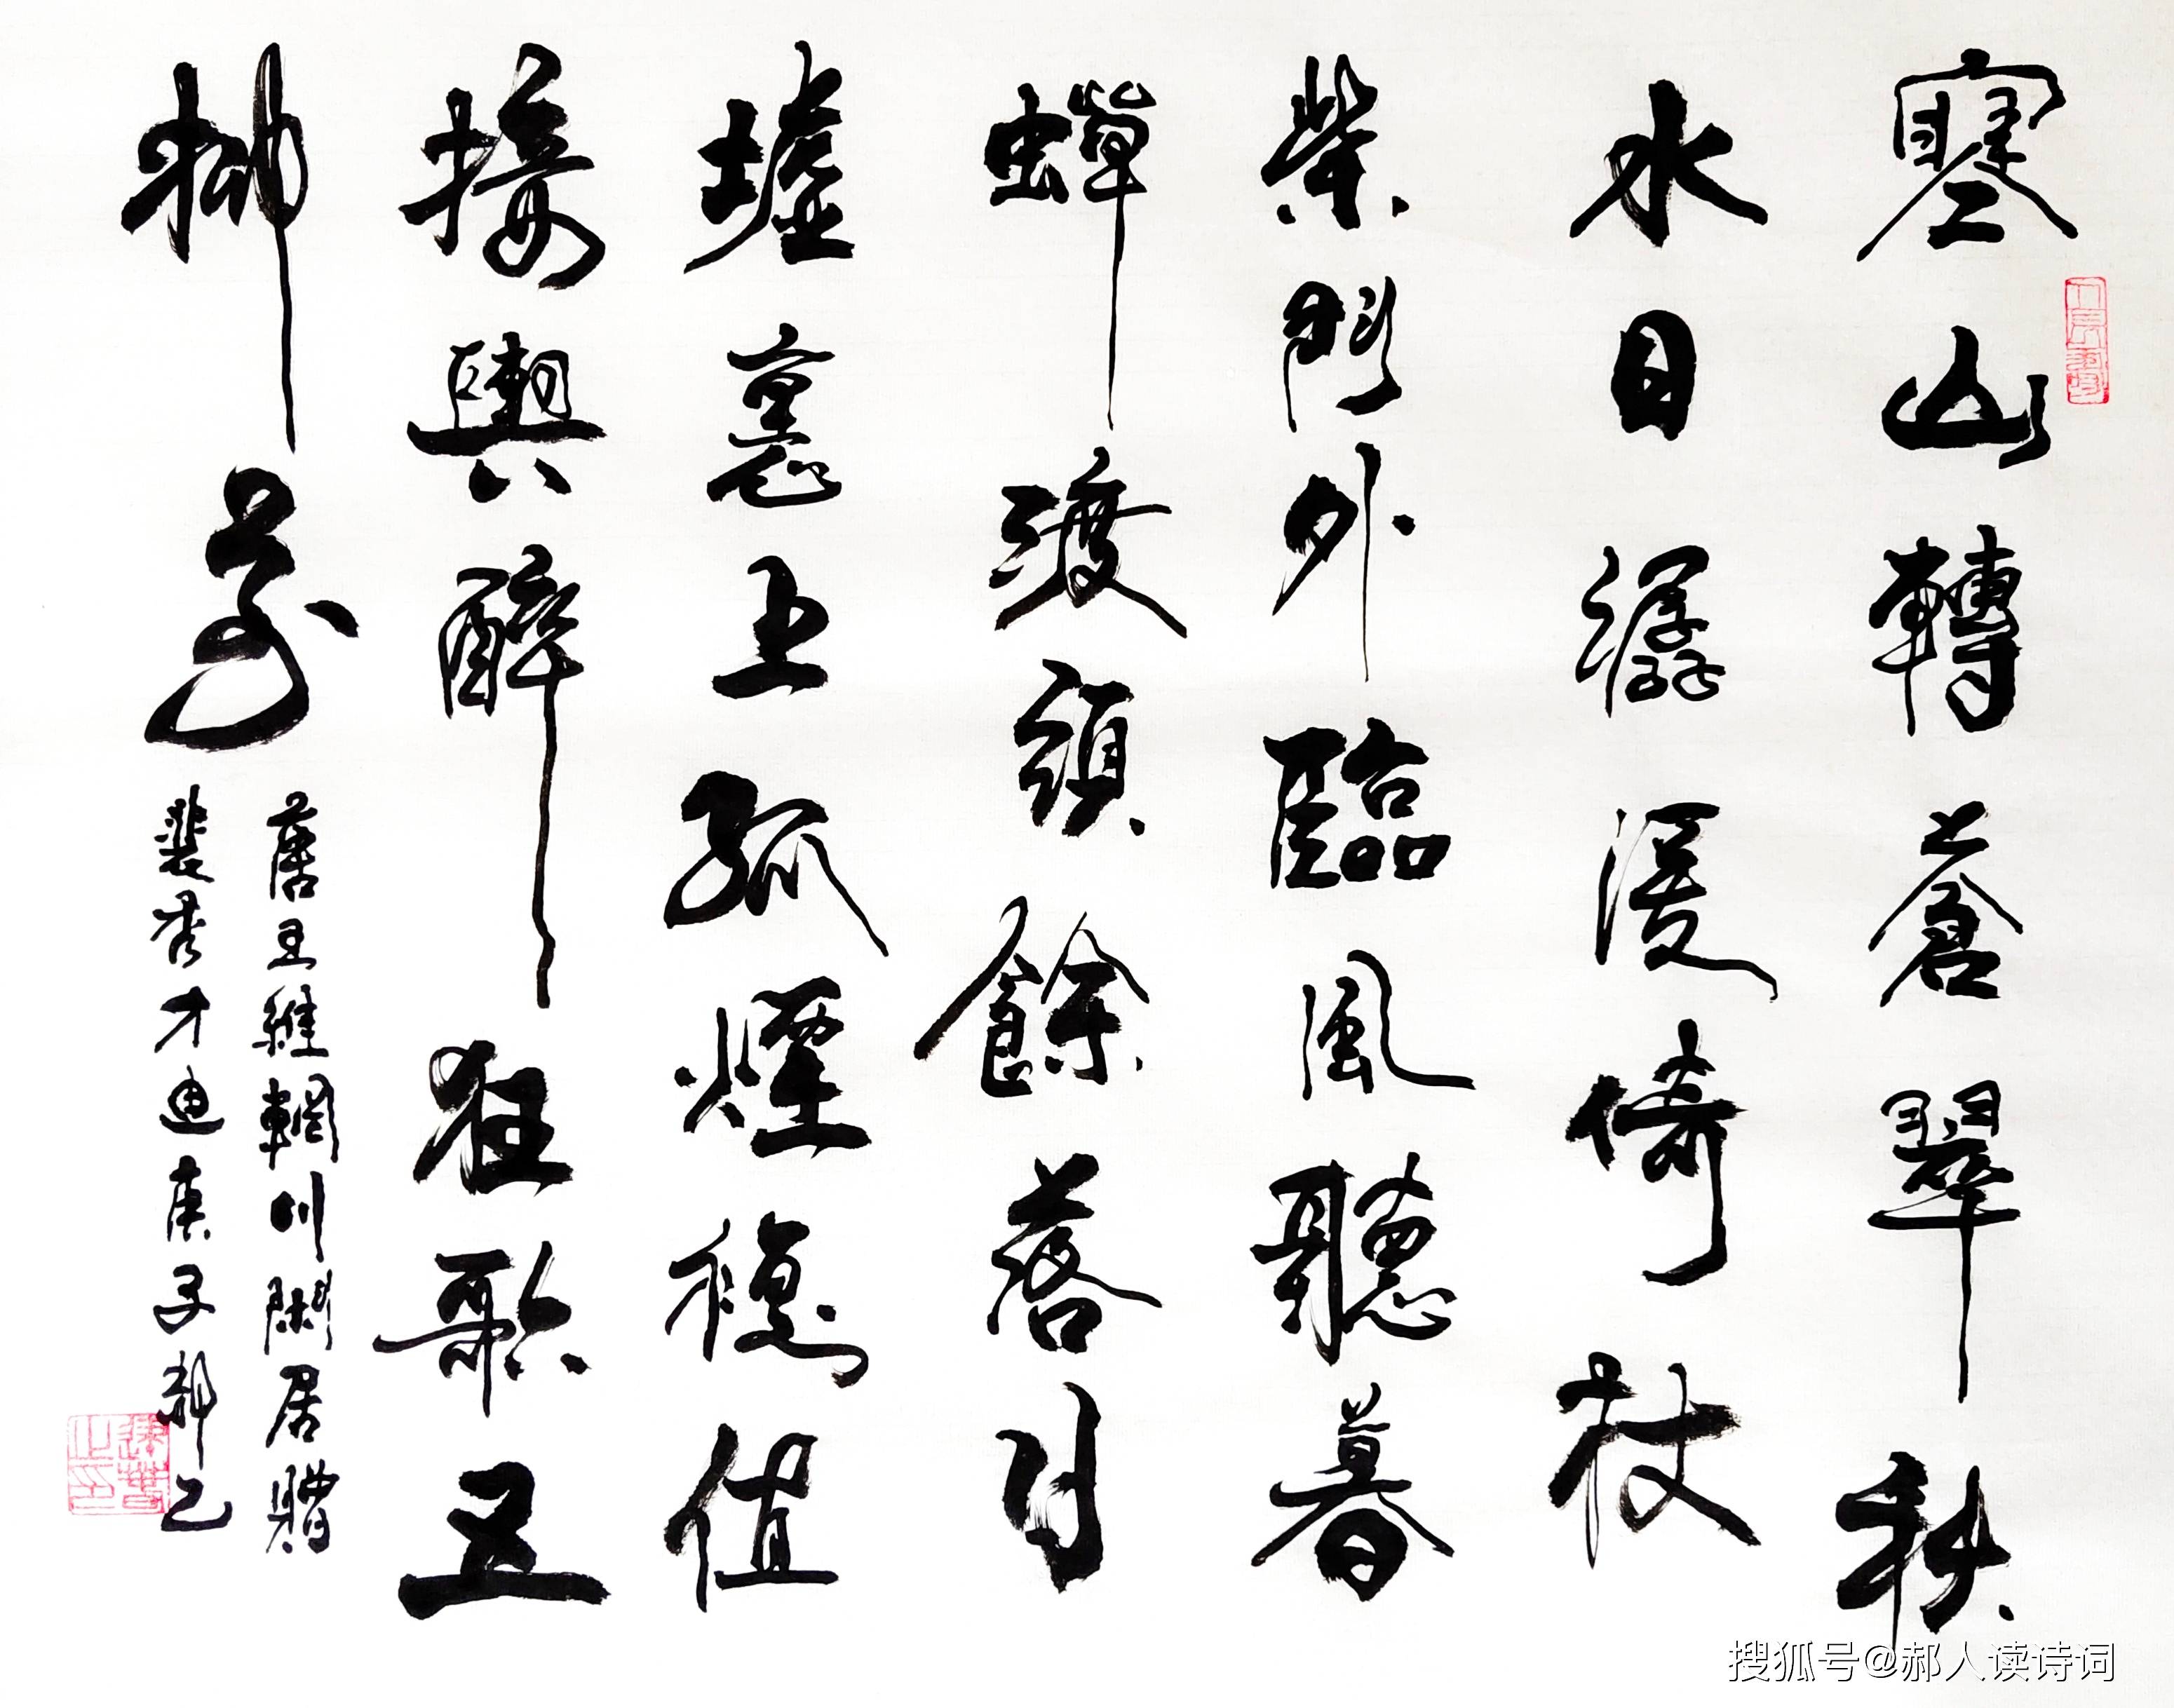 寒山轉蒼翠秋
水日潺湲倚杖
柴門外臨風聽暮
蟬渡頭餘落日
墟裏上孤煙復值
接輿醉狂歌五
柳前
唐王維輞川閑居贈
裴秀才迪庚子郝
搜狐号@郝人读诗词